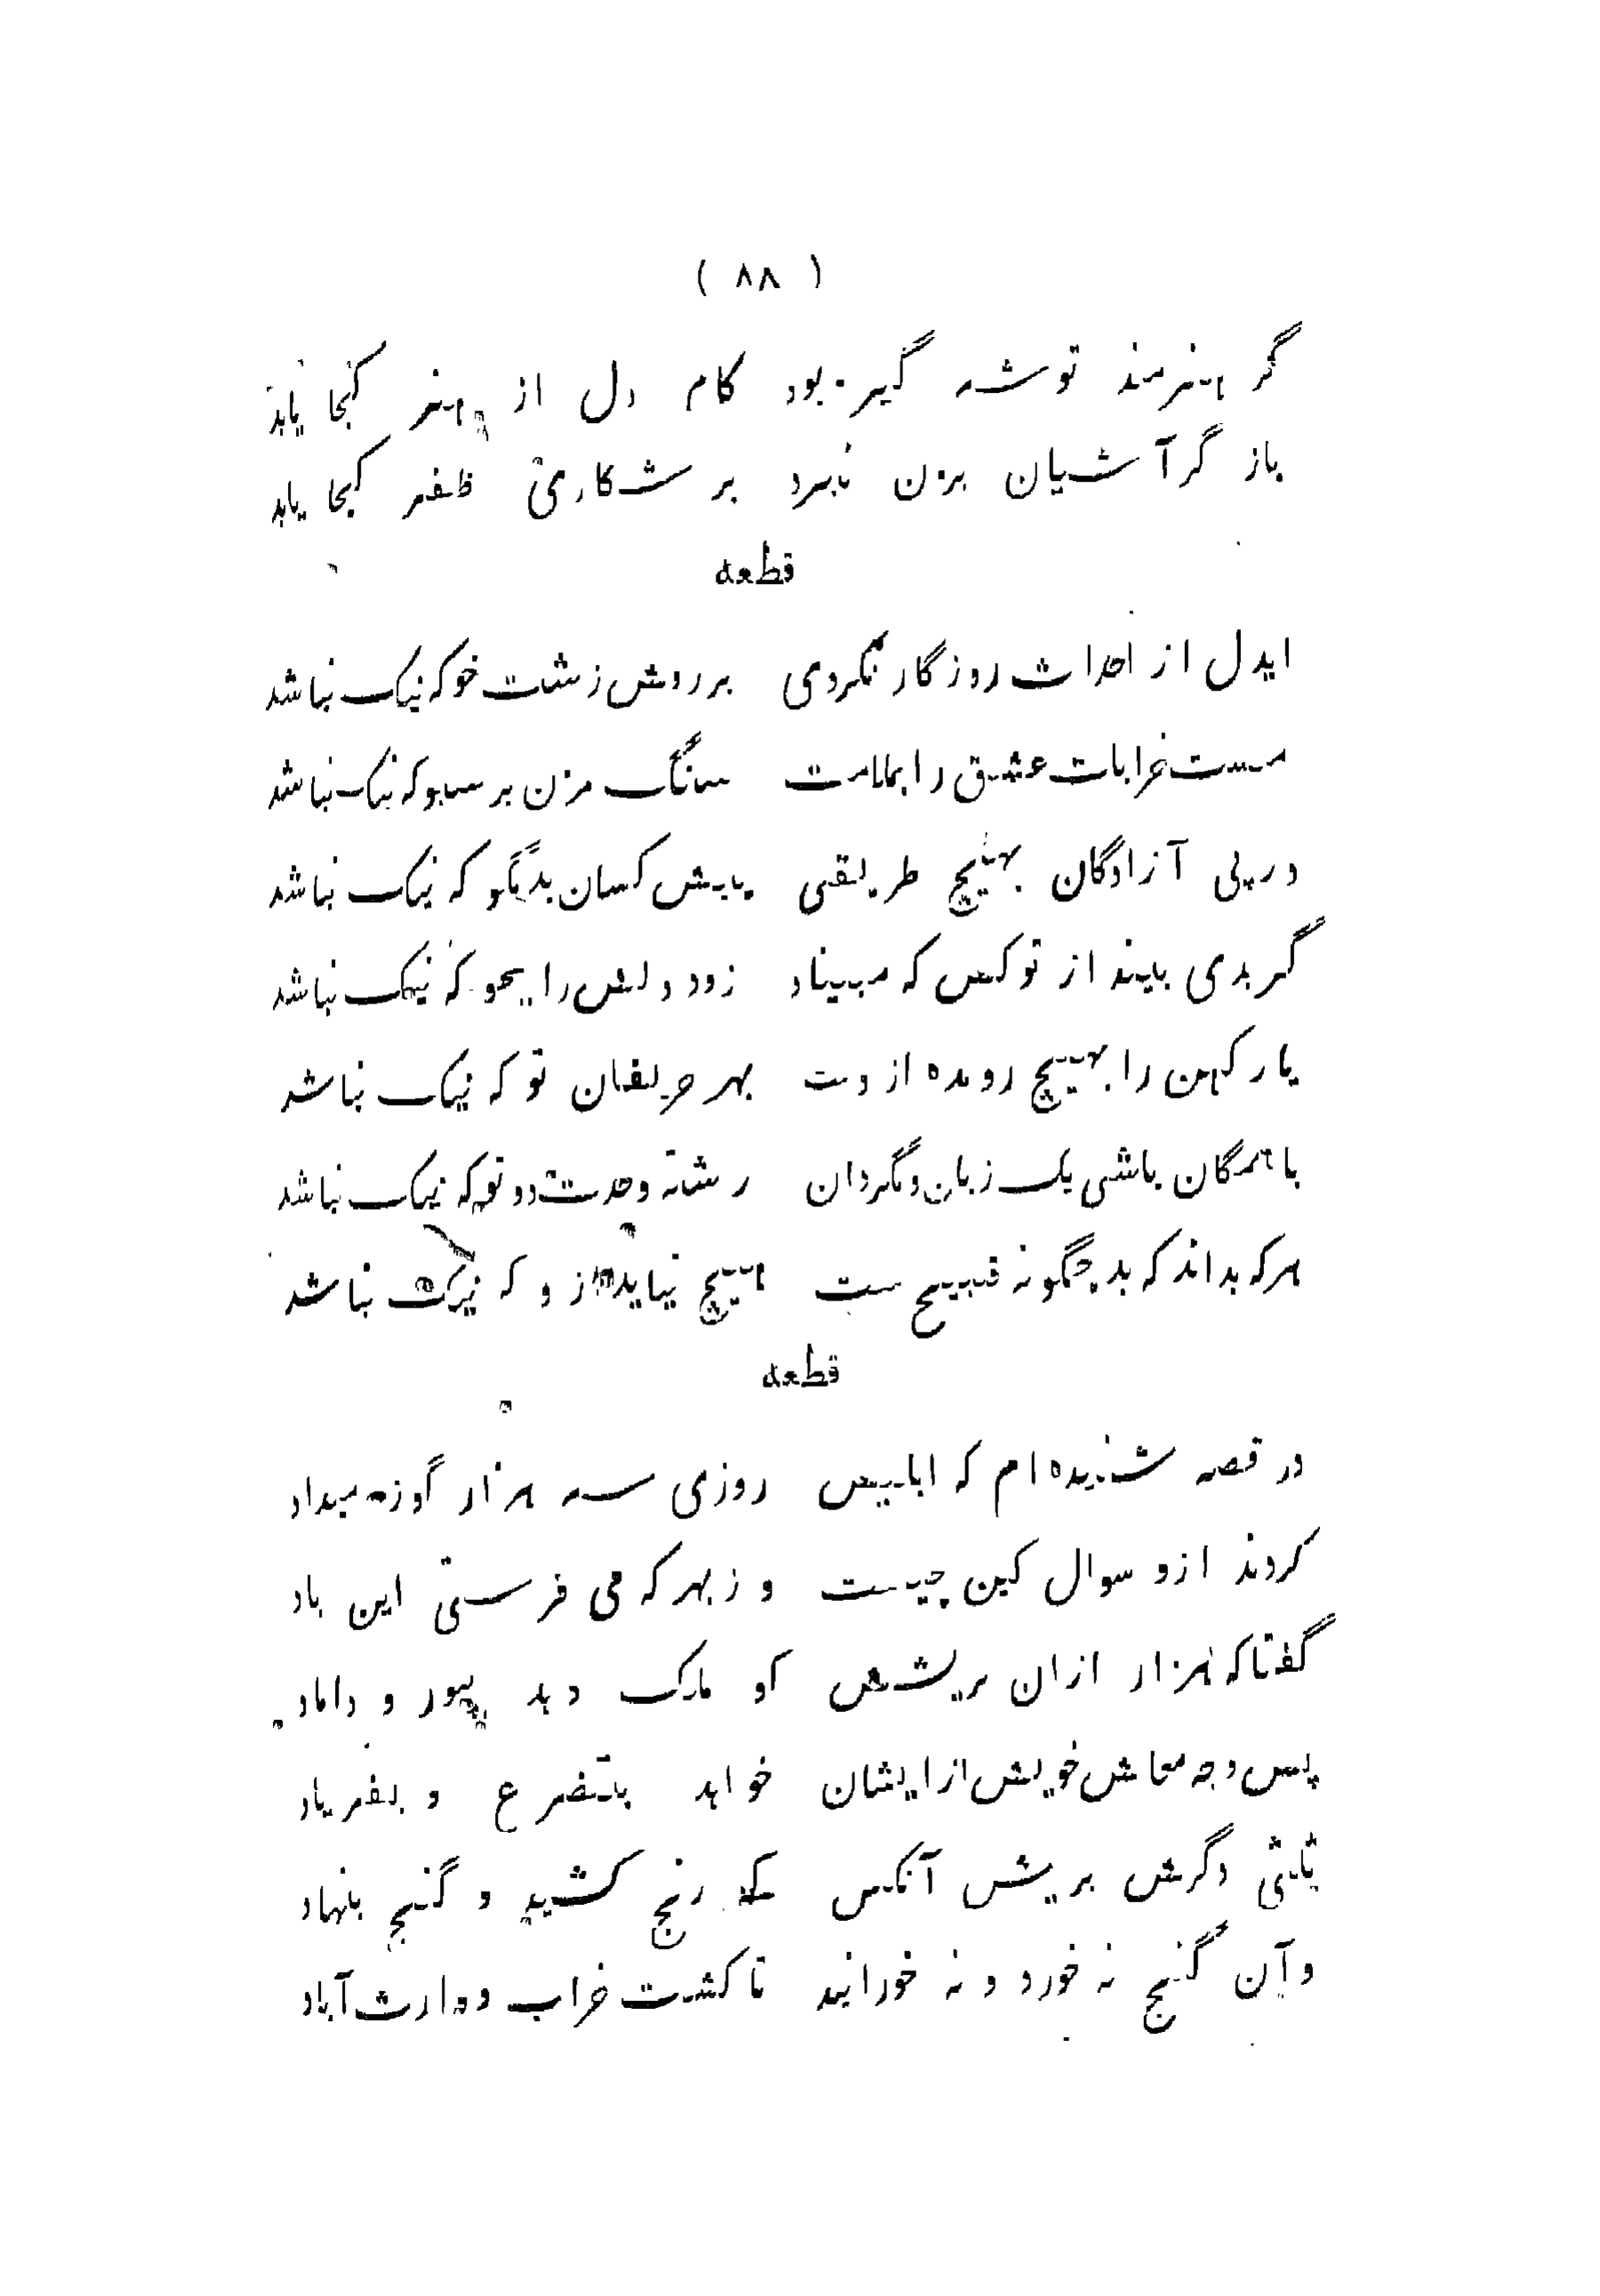 ( ۸۸ )
گر هنرمند توشه گیر بود کام دل از هنر کجا یابد
باز گر آشیان برون نبرد بر شکاری ظفر کجا یابد
قطعه
ایدل از احداث روزگار نکردی بر روش زشت خو که نیک نباشد
مست خرابات عشق را بملامت سنگ مزن بر سبو که نیک نباشد
در پی آزادگان بهیچ طریقی پیش کسان بد مگو که نیک نباشد
گر بدی بیند از تو کس که مبیناد زود دلش را بجو که نیک نباشد
یار کهن را بهیچ رو مده از دست بهر حریفان نو که نیک نباشد
با همگان باش یک زبان و مگردان رشته وحدت دو تو که نیک نباشد
هر که بداند که بد چگونه قبیح ست هیچ نیاید از و که نیک نباشد
قطعه
در قصه شنیده ام که ابلیس روزی سه هزار گوزه میداد
کردند ازو سوال کین چیست و ز بهر که می فرستی این باد
گفتا که هزار ازان بریشش کو ملک دهد بپور و داماد
پس وجه معاش خویش از ایشان خواهد بتضرع و بفریاد
ثلثی دگرش بریش آنکس که رنج کشید و گنج بنهاد
و آن گنج نه خورد و نه خورانید تا گشت خراب و وارث آباد